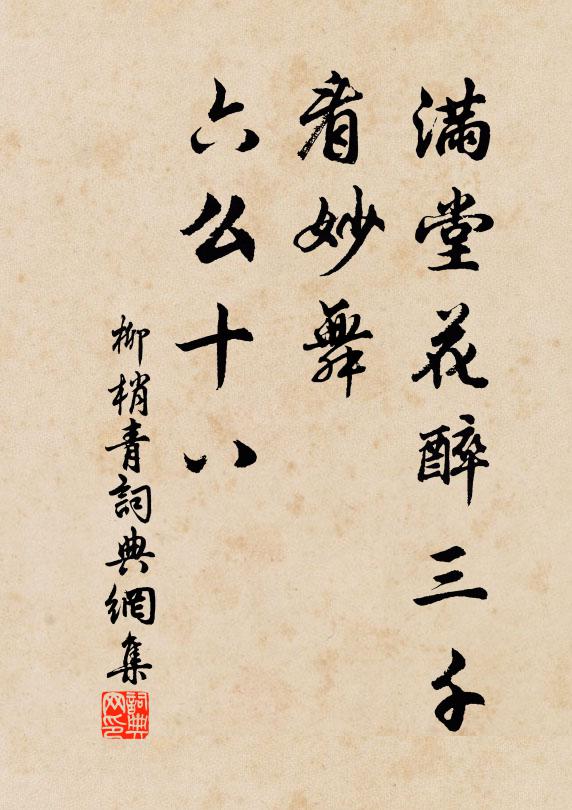 滿堂花醉三千
看妙舞
六幺十八
柳梢青詞典網集
詞典
网印